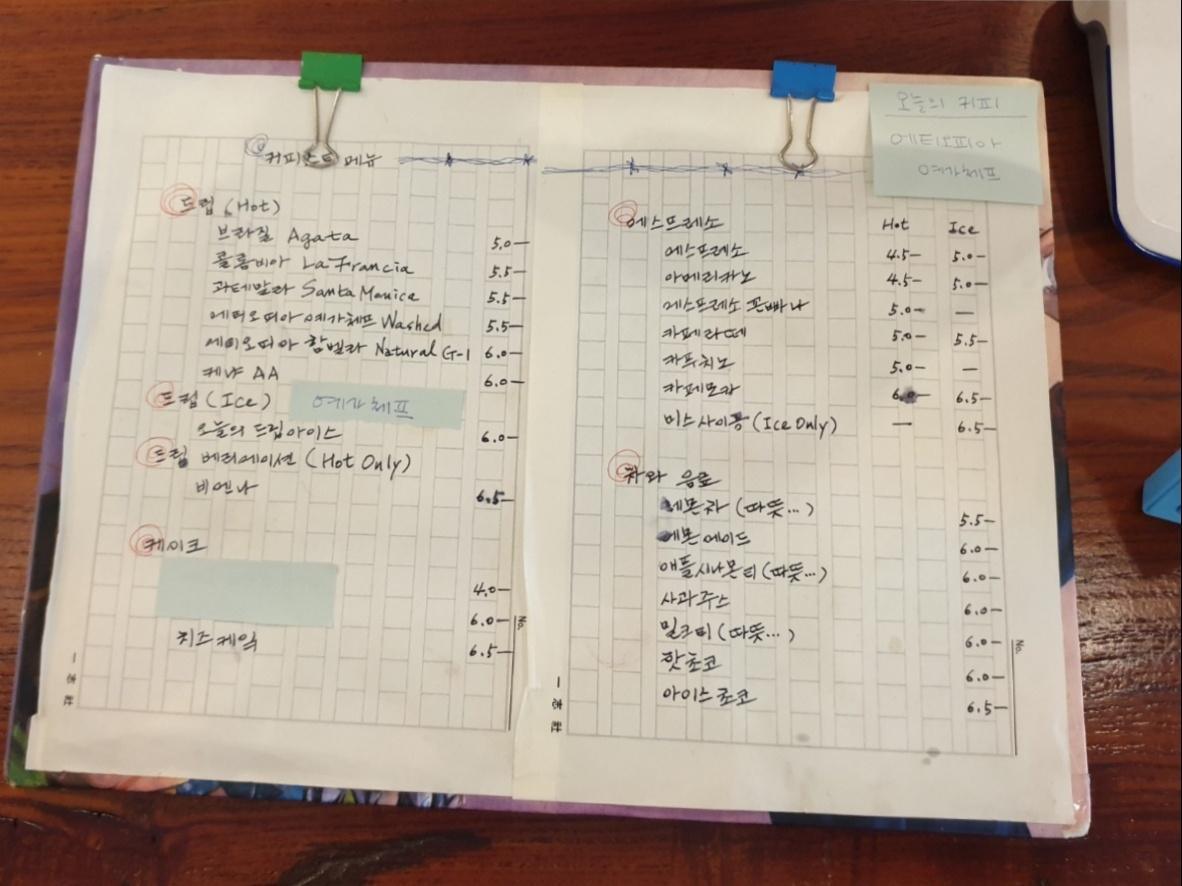 커피스트 메뉴
드립 (Hot)
브라질 Agata 5.0-
콜롬비아 La Francia 5.5-
과테말라 Santa Monica 5.5-
에티오피아 예가체프 Washed 5.5-
에티오피아 함벨라 Natural G-1 6.0-
케냐 AA 6.0-
드립 (Ice) 예가체프
오늘의 드립아이스 6.0-
드립 베리에이션 (Hot Only)
비엔나 6.5-
케이크
4.0-
6.0-
치즈케익 6.5-
No.
一志社
오늘의 커피
에티오피아
예가체프
에스프레소 Hot Ice
에스프레소 4.5- 5.0-
아메리카노 4.5- 5.0-
에스프레소 꼰빠나 5.0- —
카페라떼 5.0- 5.5-
카푸치노 5.0- —
카페모카 6.0- 6.5-
비스사이공 (Ice Only) — 6.5-
차와 음료
레몬차 (따뜻...) 5.5-
레몬에이드 6.0-
애플시나몬티 (따뜻...) 6.0-
사과주스 6.0-
밀크티 (따뜻...) 6.0-
핫초코 6.0-
아이스초코 6.5-
No.
一志社